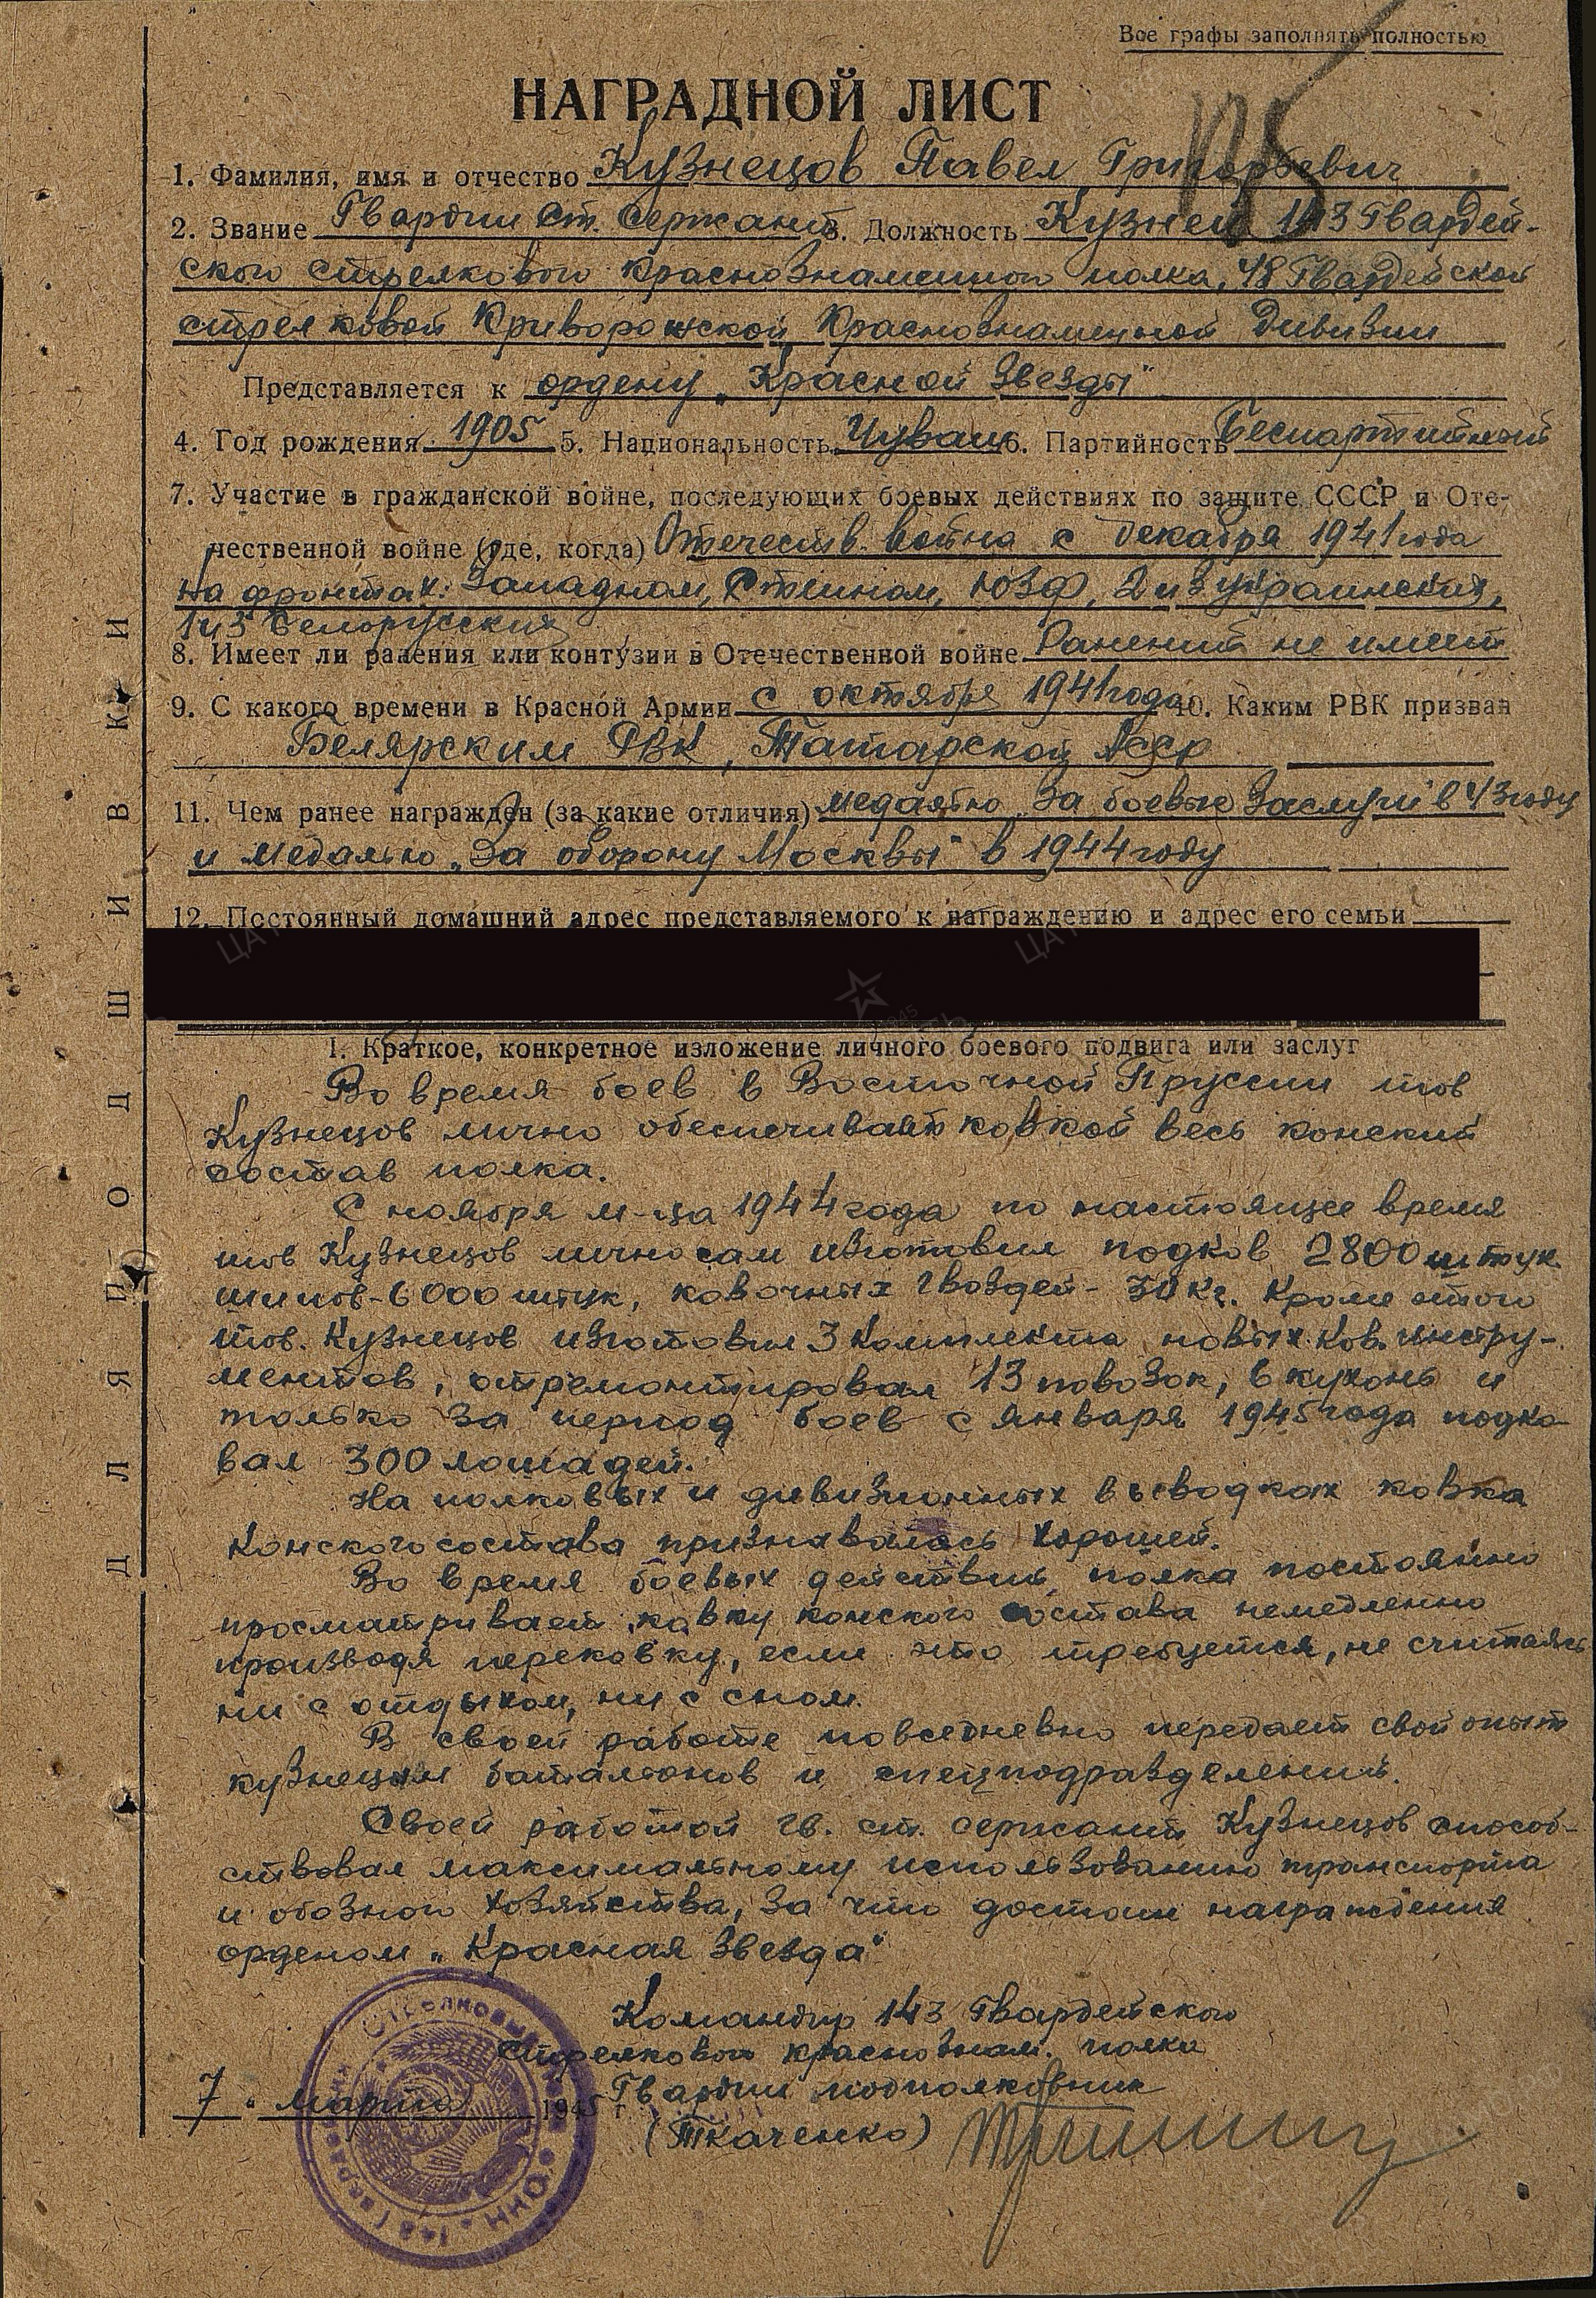 Все графы заполнять полностью
НАГРАДНОЙ ЛИСТ
1. Фамилия, имя и отчество Кузнецов Павел Григорьевич
2. Звание Гвардии ст. сержант 3. Должность Кузнец 143 Гвардей-
ского стрелкового Краснознаменного полка, 48 Гвардейской
стрелковой Криворожской Краснознаменной Дивизии
Представляется к ордену „Красной Звезды"
4. Год рождения 1905 5. Национальность Чуваш 6. Партийность Беспартийный
7. Участие в гражданской войне, последующих боевых действиях по защите СССР и Оте-
чественной войне (где, когда) Отечеств. война с декабря 1941 года
на фронтах: Западном, Степном, ЮЗФ, 2 и 3 Украинских,
1 и 3 Белорусских
8. Имеет ли ранения или контузии в Отечественной войне Ранений не имеет
9. С какого времени в Красной Армии с октября 1941 года 10. Каким РВК призван
Белярским РВК, Татарской АССР
11. Чем ранее награжден (за какие отличия) медалью „За боевые Заслуги" в 43 году
и медалью „За оборону Москвы" в 1944 году
12. Постоянный домашний адрес представляемого к награждению и адрес его семьи
I. Краткое, конкретное изложение личного боевого подвига или заслуг
Во время боев в Восточной Пруссии тов
Кузнецов лично обеспечивает ковкой весь конский
состав полка.
С ноября м-ца 1944 года по настоящее время
тов Кузнецов лично сам изготовил подков 2800 штук.
шипов-6000 штук, ковочных гвоздей- 30 кг. Кроме этого
тов. Кузнецов изготовил 3 комплекта новых ков. инстру-
ментов, отремонтировал 13 повозок, 6 кухонь и
только за период боев с января 1945 года подко-
вал 300 лошадей.
На полковых и дивизионных выводках ковка
конского состава признавалась хорошей.
Во время боевых действий полка постоянно
просматривает ковку конского состава немедленно
производя перековку, если это требуется, не считаясь
ни с отдыхом, ни с сном.
В своей работе повседневно передает свой опыт
кузнецам баталионов и спецподразделений.
Своей работой гв. ст. сержант Кузнецов способ-
ствовал максимальному использованию транспорта
и обозного хозяйства, за что достоин награждения
орденом „Красная Звезда"
Командир 143 Гвардейского
стрелкового краснознам. полка
Гвардии подполковник
7 „ марта 1945 г.
(Ткаченко)
ДЛЯ ПОДШИВКИ